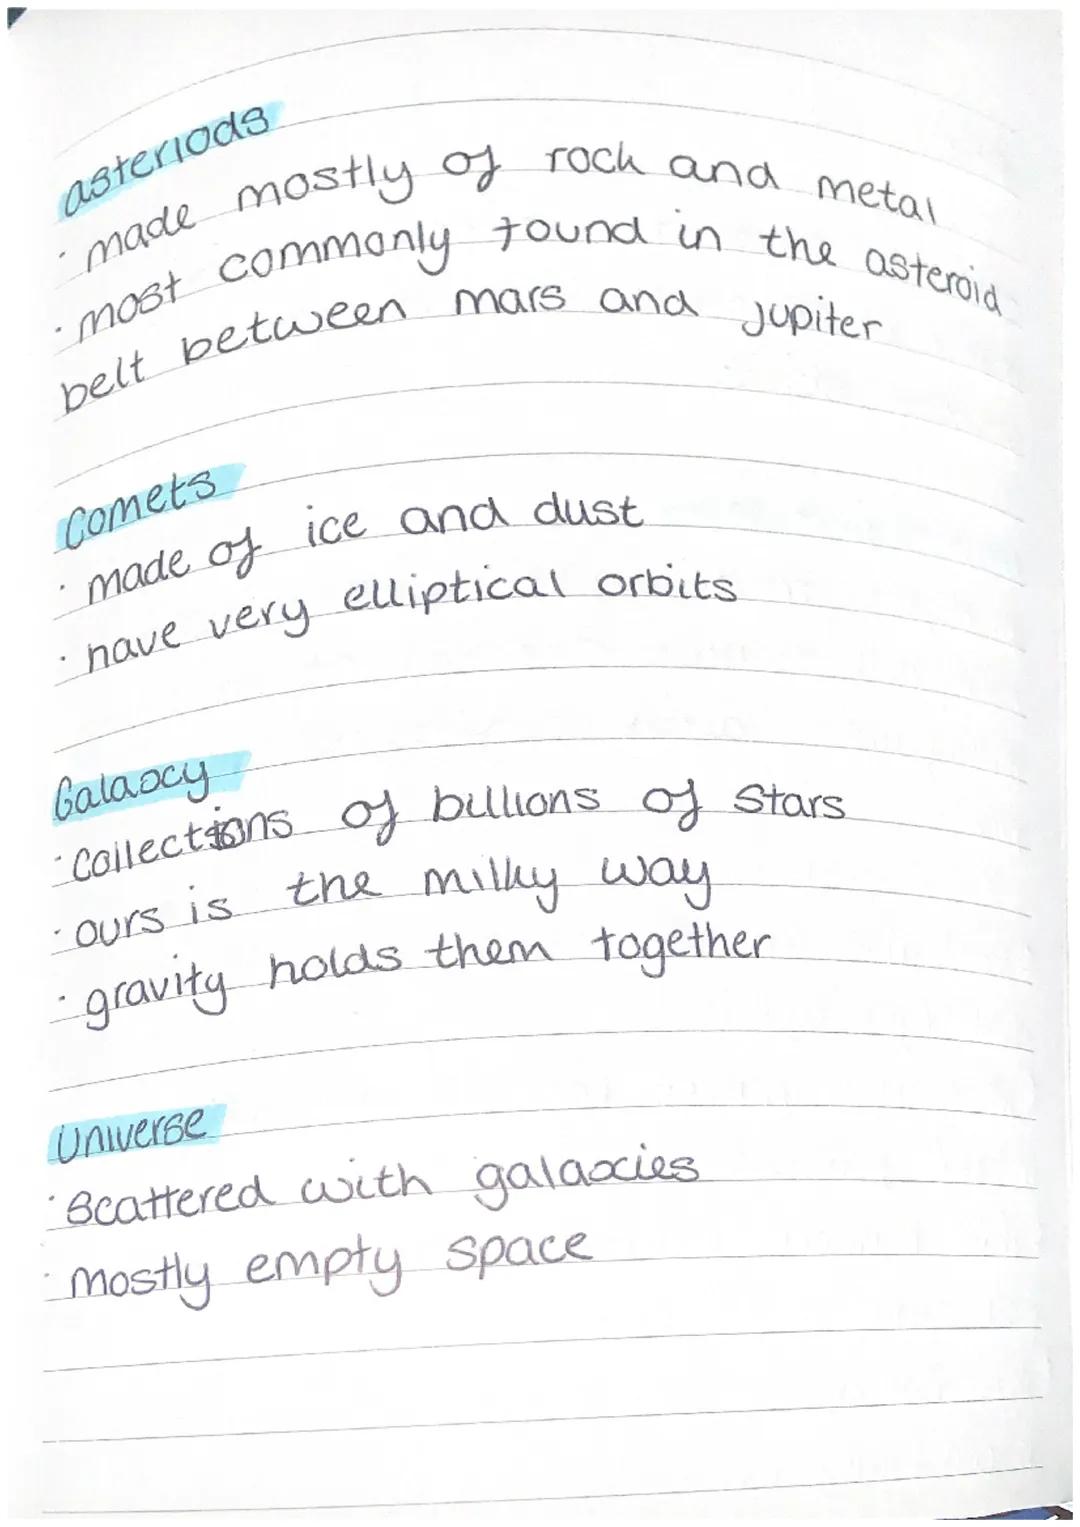 asteriods
· made mostly of rock and metal
· most commonly found in the asteroid
belt between mars and jupiter
Comets
· made of ice and dust
· have very elliptical orbits
Galaxy
· Collections of billions of stars
· ours is the milky way
· gravity holds them together
Universe
· Scattered with galaxies
· mostly empty space